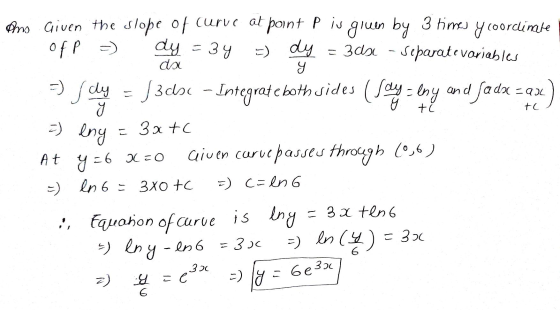 Ans Given the slope of curve at point P is given by 3 times ycoordinate
of P => dy/dx = 3y => dy/y = 3dx - Separate variables
=> ∫dy/y = ∫3dx - Integrate both sides (∫dy/y = lny +c and ∫adx = ax +c)
=> lny = 3x+c
At y=6 x=0 Given curve passes through (0,6)
=> ln6 = 3x0 +c => c=ln6
∴ Equation of curve is lny = 3x +ln6
=> lny - ln6 = 3x => ln(y/6) = 3x
=> y/6 = e^3x => y = 6e^3x